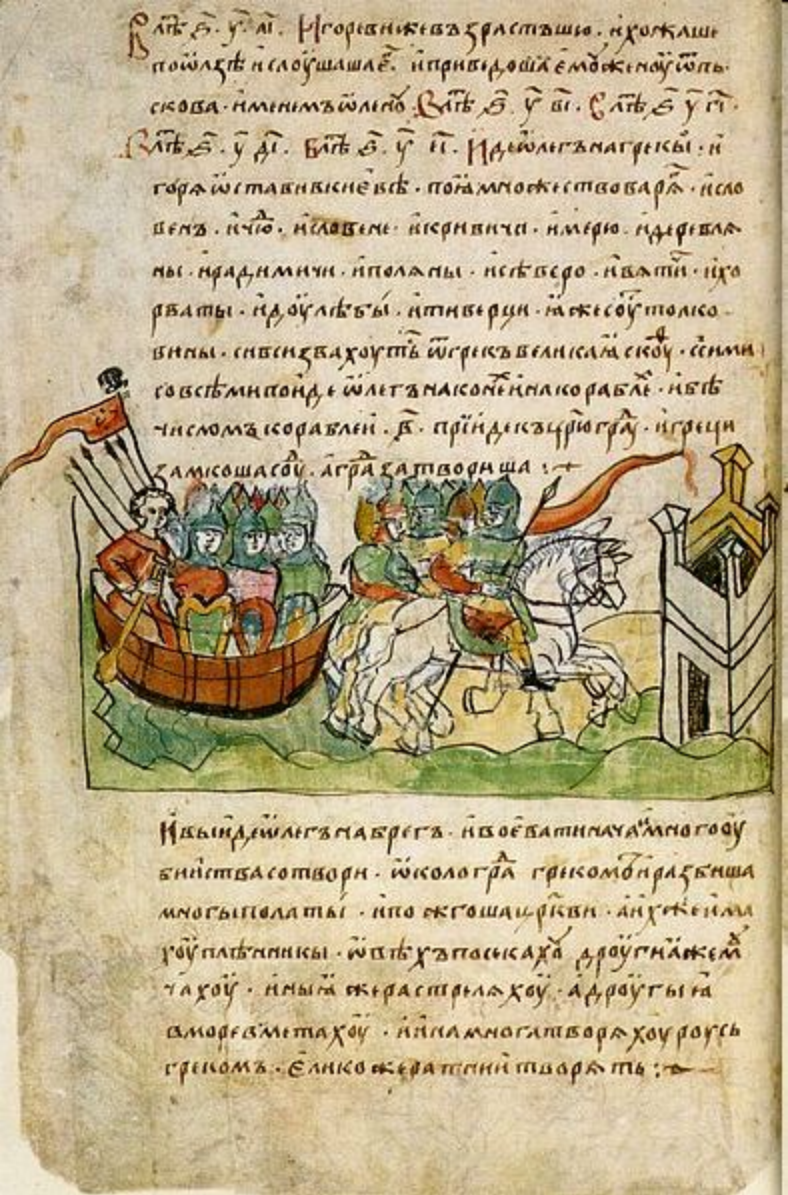 В лѣт҃ ѕ҃. у҃. аі҃. Игоревижевъзрастъшю. ихожаше
поѡлзѣ ислоушашаег҃. иприведошаемоуженоуѿпь
скова. именемъѡленоу. В лѣт҃ ѕ҃. у҃ ві҃. В лѣт҃ ѕ҃ у҃ гі҃.
В лѣт҃ ѕ҃. у҃ ді҃. В лѣт҃ ѕ҃. у҃ еі҃. Идеѡлегънагрекы. и
горяѡставивкиевѣ. поꙗмножествоваряг. исло
венъ. ичюд. исловене. икривичи. имерю. идеревля
ны. ирадимичи. иполяны. исѣверо. ивятичи. ихо
рваты. идоулѣбы. итиверци. ꙗжесоутьтолко
вины. сивсизвахоутьс ѿгрекъвеликаꙗскоуф. ссѣми
совсѣмипоидеѡлегънаконехинакорабле. ибѣ
числомъкораблеи. в҃. прїидекъцр҃югра҃ду. игреци
замкошасоуд. аградзатвориша :~
Ивыидеѡлегънабрегъ. ивоеватинача. имногооу
биистваcотвори. ѡкологра҃да грекомъ. иразбиша
многыполаты. ипожгошацр҃кви. аихжеима
хоуплѣнникы. ѡвѣхъпосѣкахоу дроугиꙗжемоу
чахоу. иныꙗжерастреляхоу. адроугыꙗ
вморевъметахоу. иинамногатворяхоуроусь
грекомъ. еликожератниитворять :~